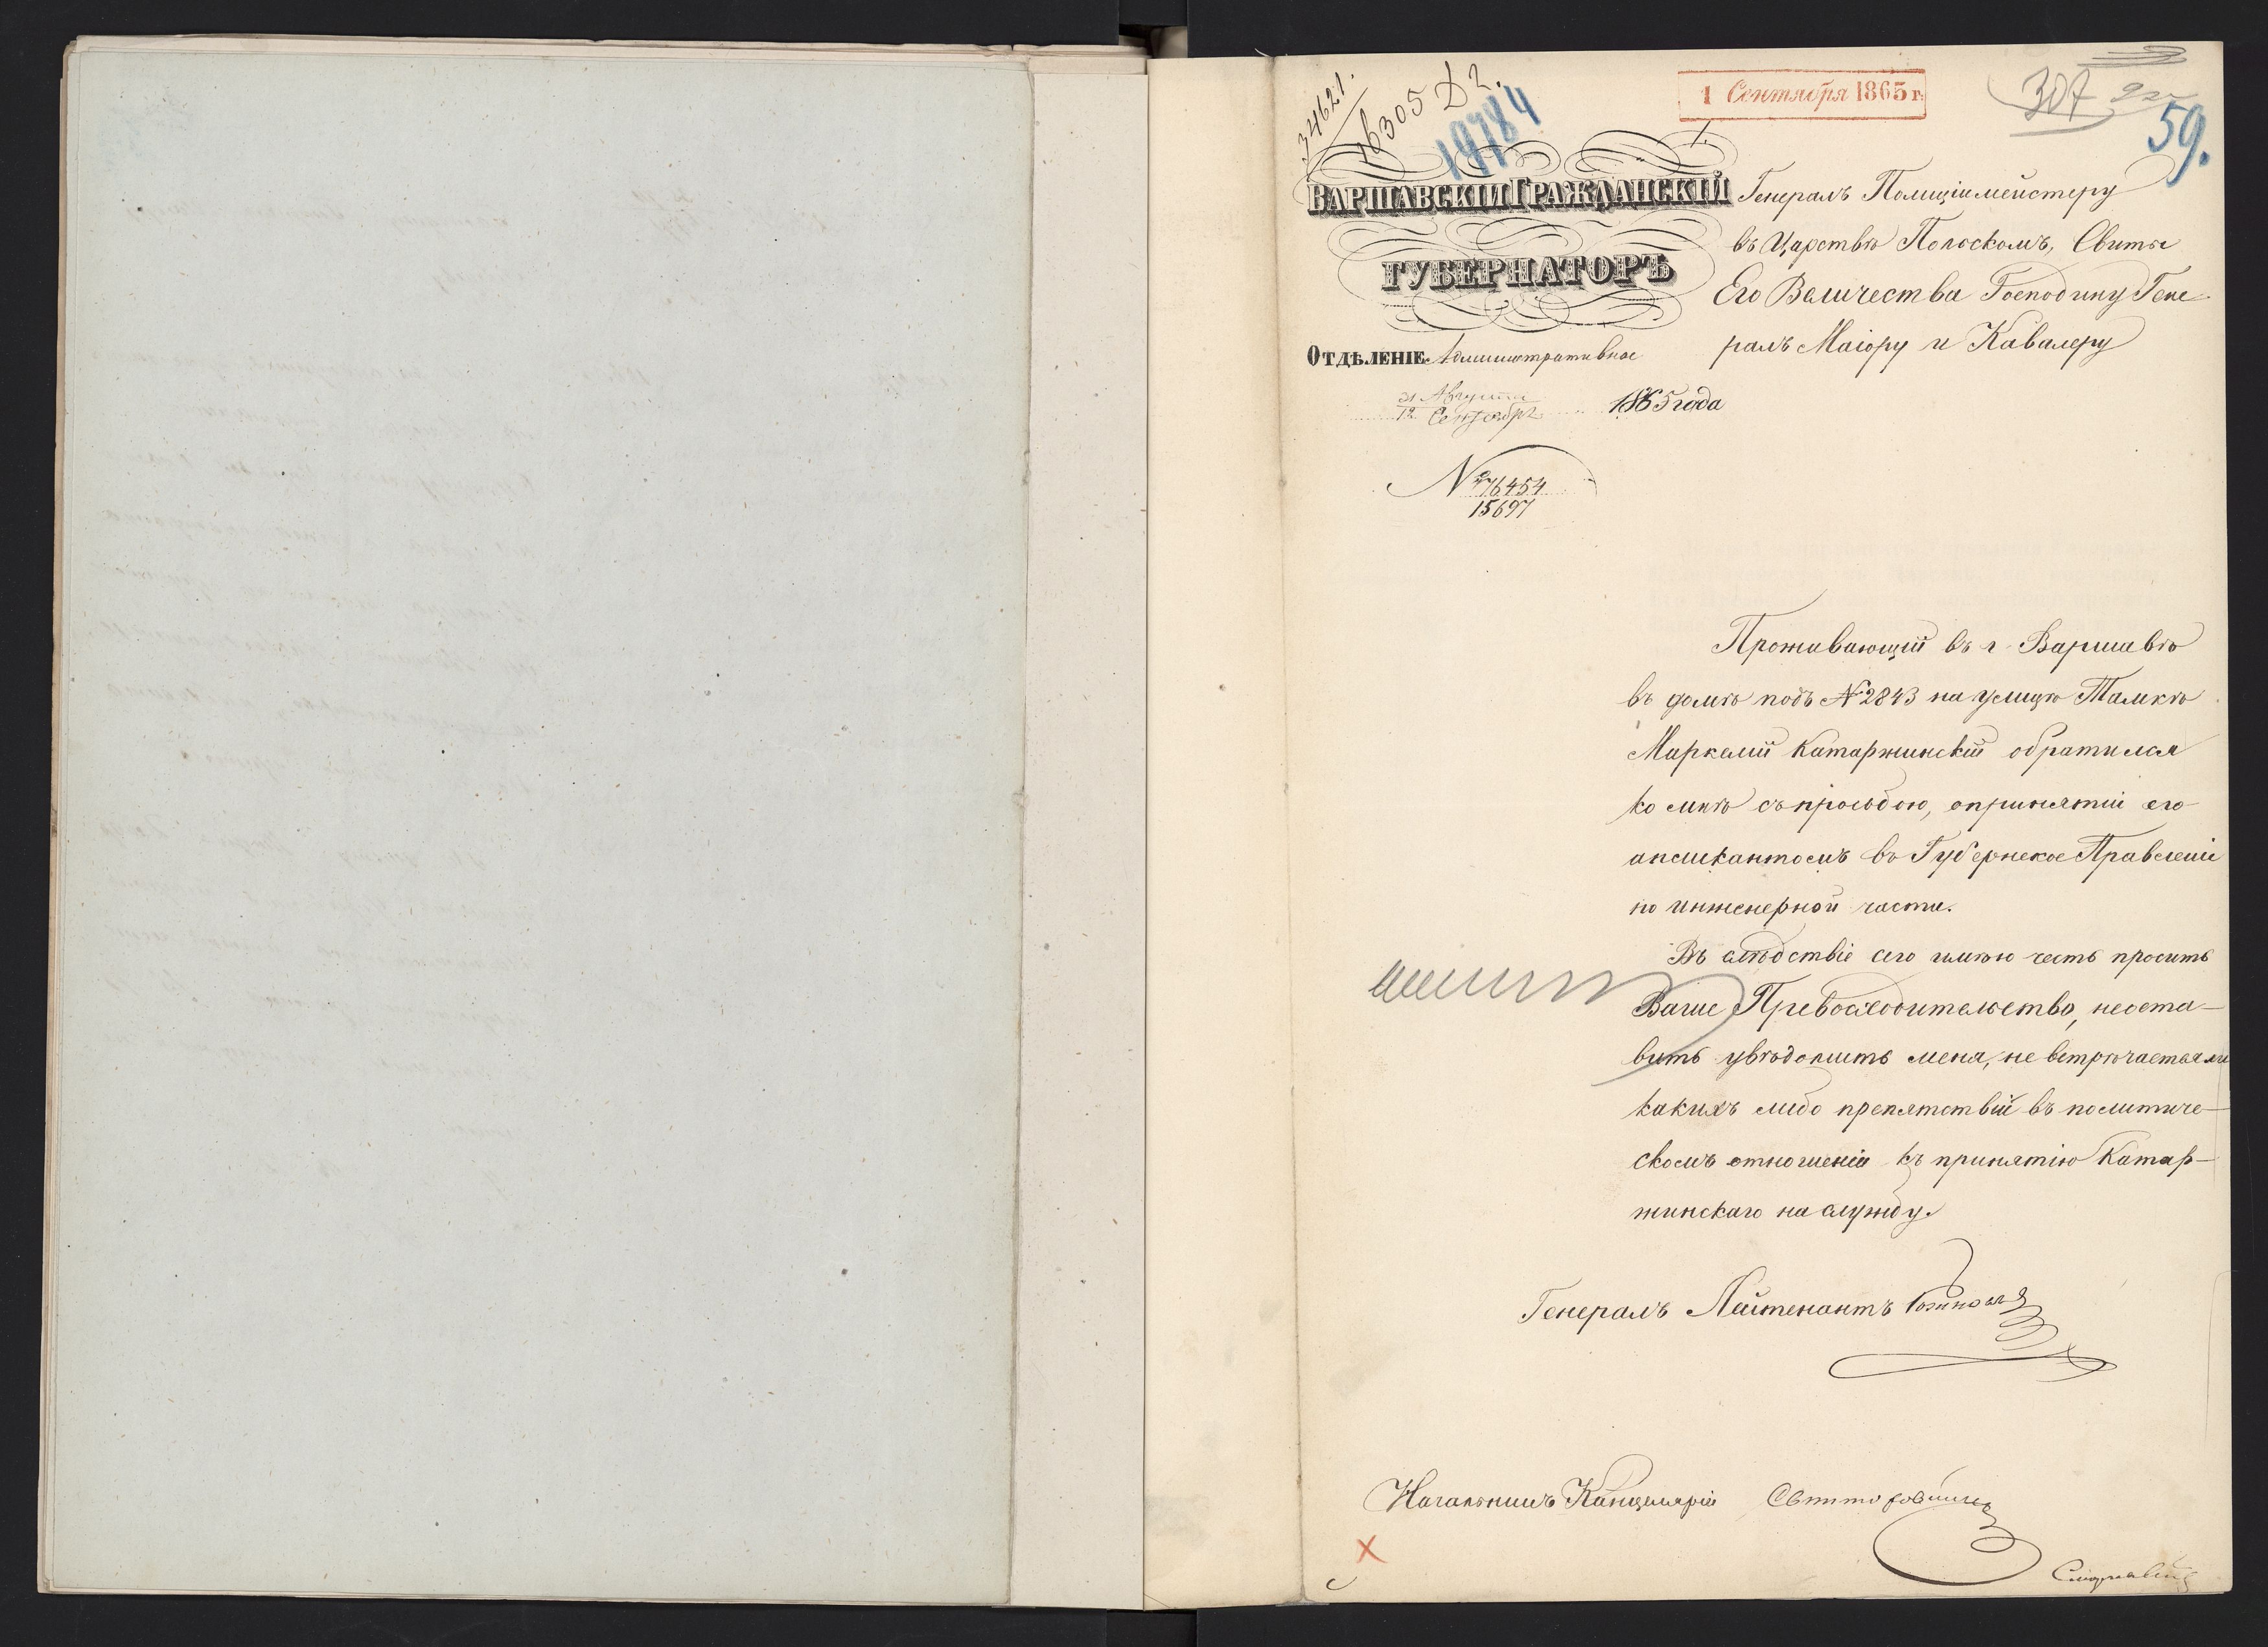 34621.
16305 Д 2.
19784
1 Сентября 1865 г.
307
59.
ВАРШАВСКІЙ ГРАЖДАНСКІЙ
ГУБЕРНАТОРЪ
ОТДѢЛЕНІЕ Административное
31 Августа
12 Сентября 1865 года
№ 76454
15697
Генералъ Полиціймейстеру
въ Царствѣ Польскомъ, Свиты
Его Величества Господину Гене-
ралъ Маіору и Кавалеру
Проживающій въ г. Варшавѣ
въ домѣ подъ № 2843 на улицѣ Тамкѣ
Маркелій Катаржинскій обратился
ко мнѣ съ просьбою, о принятіи его
апликантомъ въ Губернское Правленіе
по инженерной части.
Въ слѣдствіе сего имѣю честь просить
Ваше Превосходительство, неоста-
вить увѣдомить меня, не встрѣчается ли
какихъ либо препятствій въ политиче-
скомъ отношеніи къ принятію Катар-
жинскаго на службу.
Генералъ Лейтенантъ
Начальникъ Канцеляріи